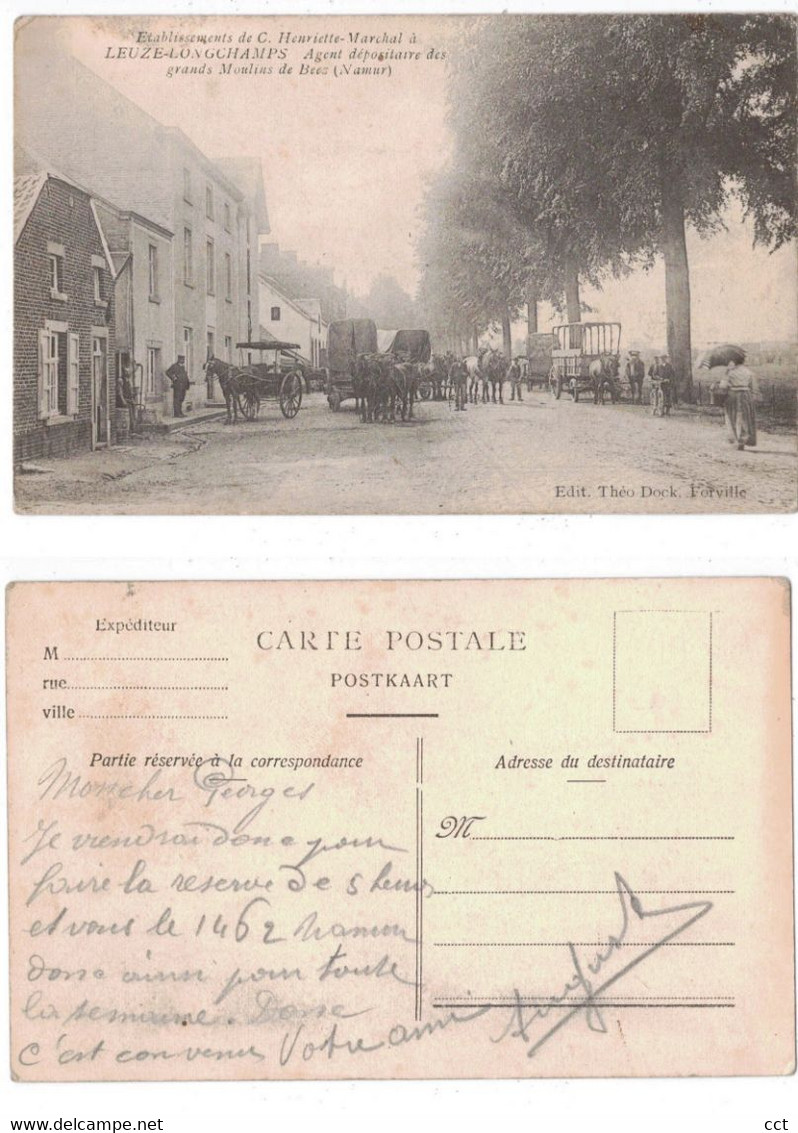 Etablissements de C. Henriette-Marchal à
LEUZE-LONGCHAMPS Agent dépositaire des
grands Moulins de Beez (Namur)
Edit. Théo Dock. Forville
Expéditeur
M
rue
ville
CARTE POSTALE
POSTKAART
Partie réservée à la correspondance
Adresse du destinataire
M
Mon cher Georges
Je viendrai donc pour
faire la reserve de 5 heures
et vous le 1462 Namur
donc ainsi pour toute
la semaine. Donc
c'est convenu Votre ami August
www.delcampe.net
cct